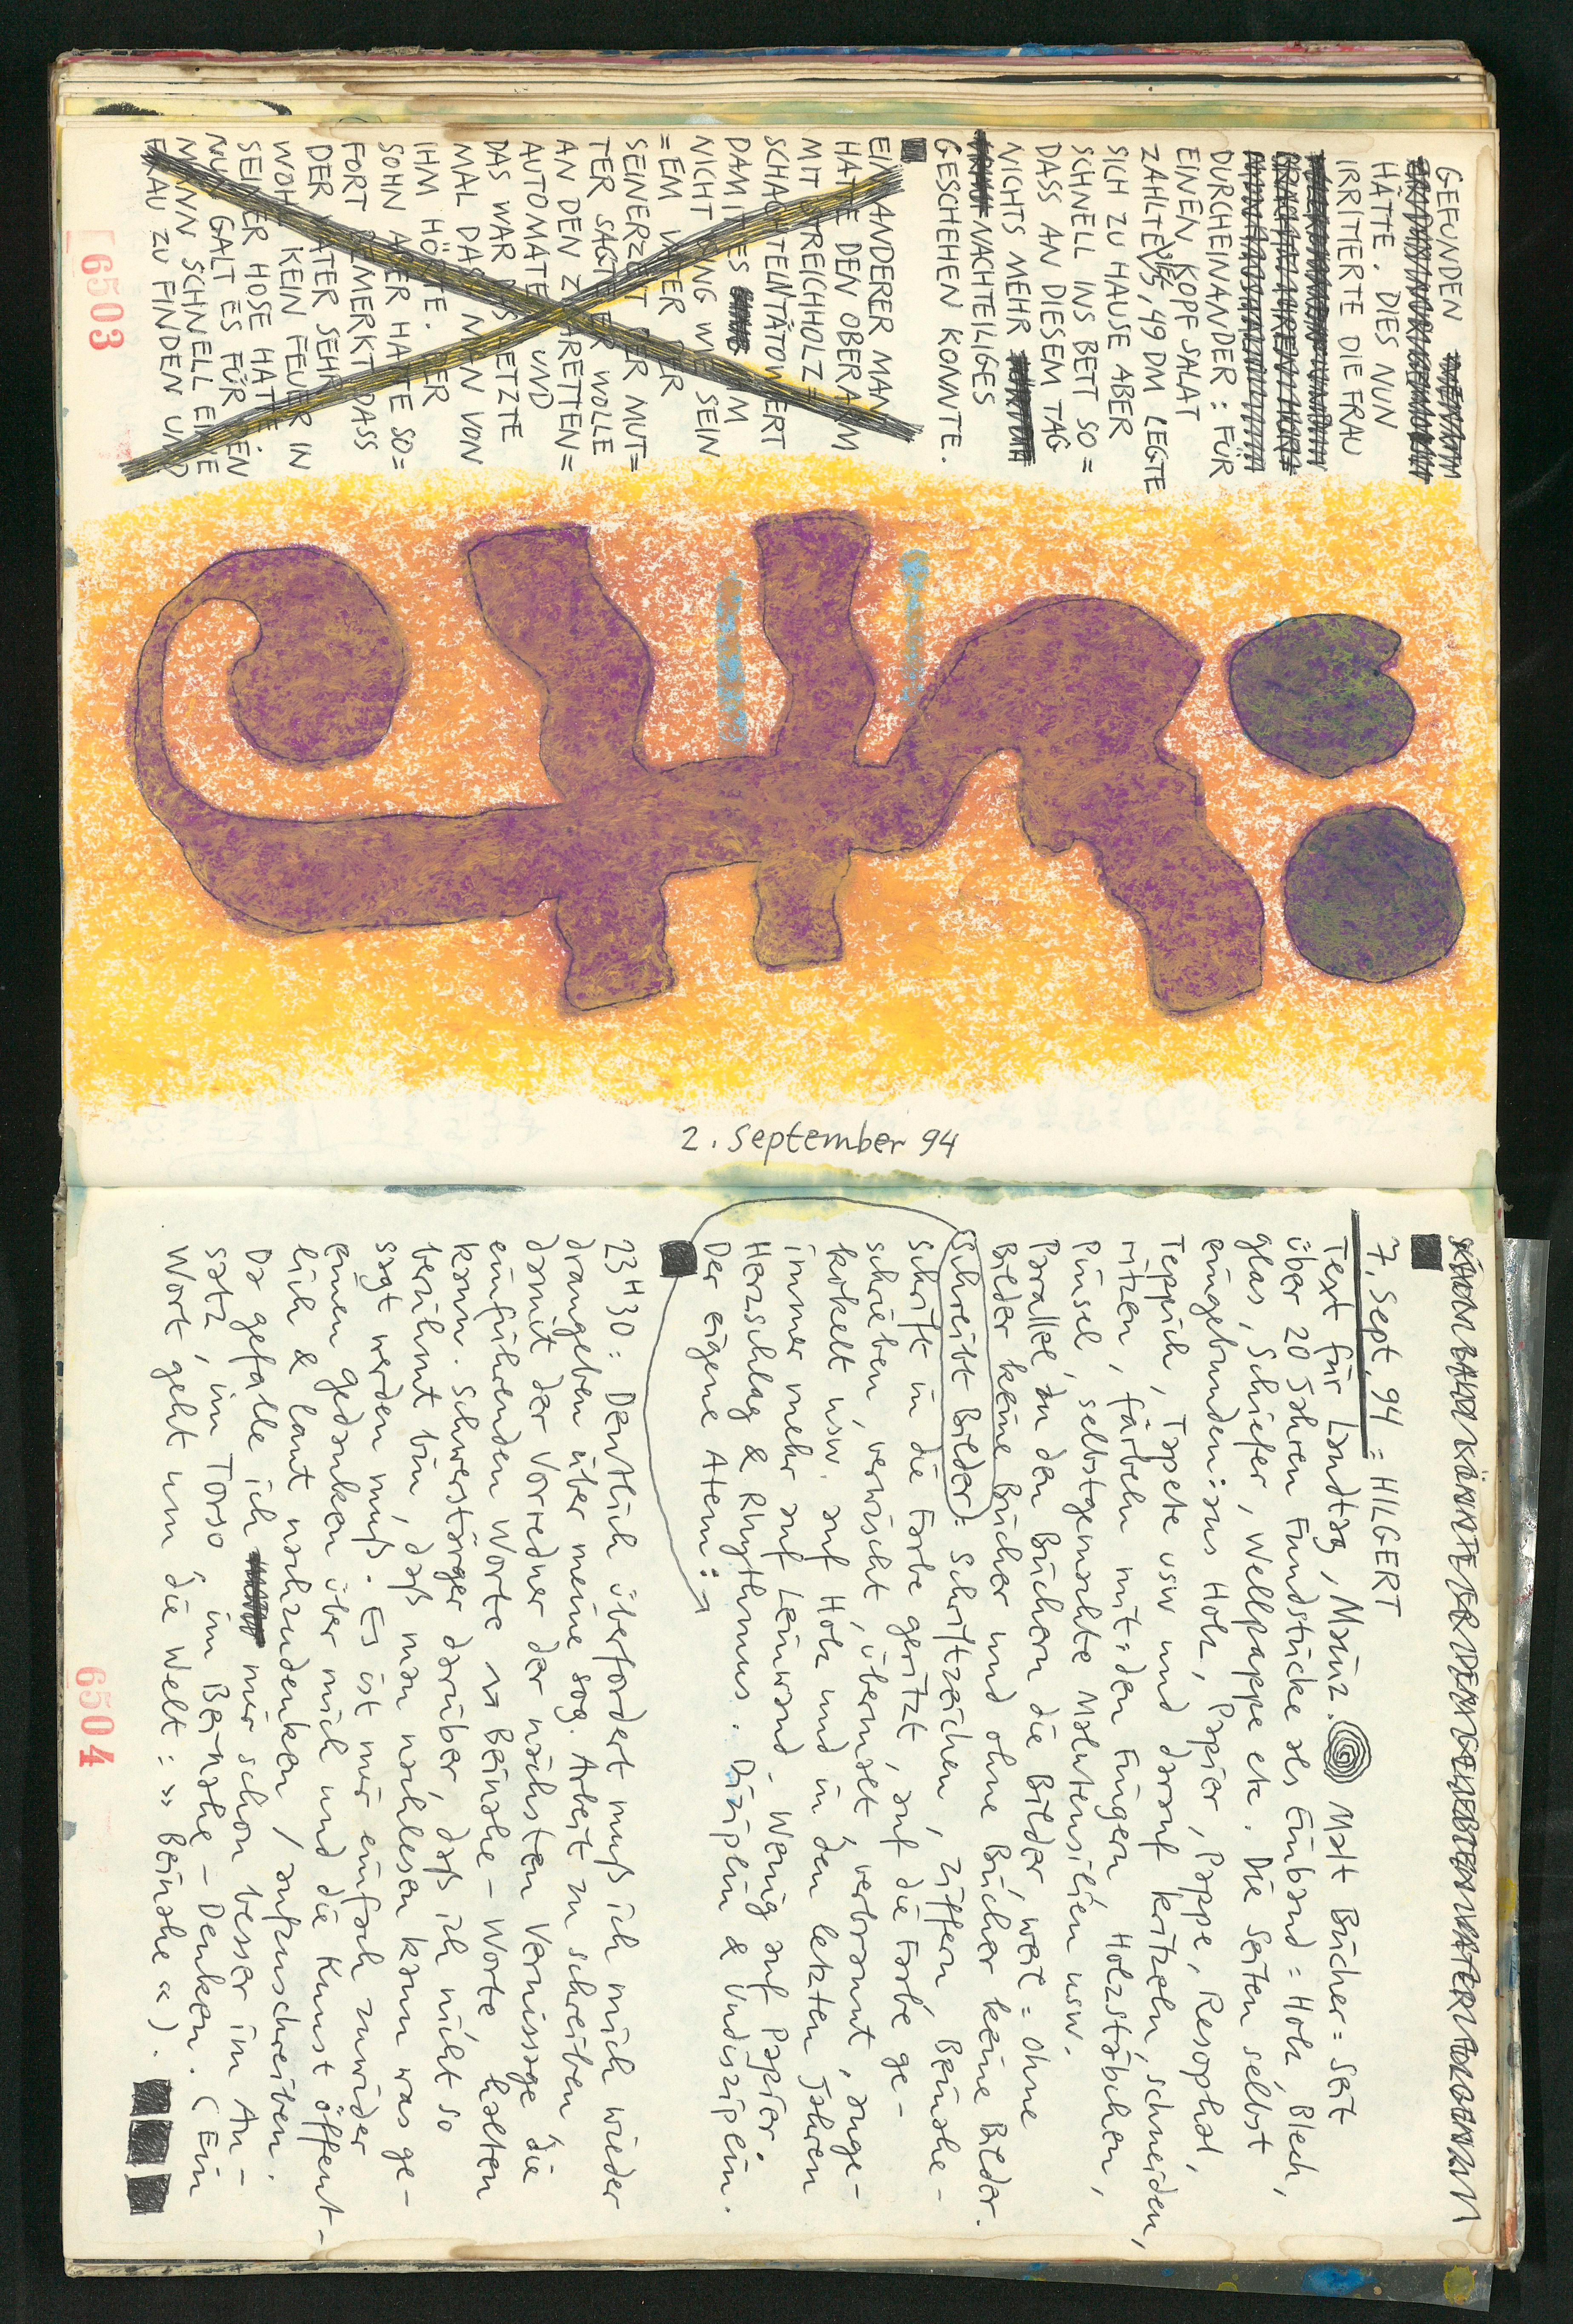 GEFUNDEN
HÄTTE. DIES NUN
IRRITIERTE DIE FRAU
DURCHEINANDER: FÜR
EINEN KOPFSALAT
ZAHLTE SIE 5,49 DM LEGTE
SICH ZU HAUSE ABER
SCHNELL INS BETT SO=
DASS AN DIESEM TAG
NICHTS MEHR
NACHTEILIGES
GESCHEHEN KONNTE.
EIN ANDERER MANN
HATTE DEN OBERARM
MIT STREICHHOLZ=
SCHACHTELN TÄTOWIERT
DAMIT ES IHM
NICHT GING WIE SEIN
=EM VATER DER
SEINERZEIT DER MUT=
TER SAGTE ER WOLLE
AN DEN ZIGARETTEN=
AUTOMATEN UND
DAS WAR DAS LETZTE
MAL DAS MAN VON
IHM HÖRTE. DER
SOHN ABER HATTE SO=
FORT BEMERKT DASS
DER VATER SEHR
WOHL KEIN FEUER IN
SEINER HOSE HATTE.
NUN GALT ES FÜR DEN
MANN SCHNELL EINE
FRAU ZU FINDEN UND
6503
2. September 94
7. Sept. 94 = HILGERT
Text für Landtag, Mainz. Malt Bücher = Seit
über 20 Jahren Fundstücke als Einband = Holz, Blech,
glas, Schiefer, Wellpappe etc. Die Seiten selbst
eingebunden: aus Holz, Papier, Pappe, Resophal,
Teppich, Tapete usw und darauf kritzeln, schneiden,
ritzen, färbeln mit: den Fingern, Holzstäbchen,
Pinsel, selbstgemachte Malutensilien usw.
Parallel zu den Büchern die Bilder, weil = ohne
Bilder keine Bücher und ohne Bücher keine Bilder.
Schreibt Bilder: Schriftzeichen, Ziffern, Beinahe-
schrift in die Farbe geritzt, auf die Farbe ge-
schrieben, verwischt, übermalt, verbrannt, ange-
kokelt usw. auf Holz und in den letzten Jahren
immer mehr auf Leinwand. Wenig auf Papier.
Herzschlag & Rhythmus. Diziplin & Undisziplin.
Der eigene Atem:
23H30: Deutlich überfordert muß ich mich wieder
drangeben über meine sog. Arbeit zu schreiben,
damit der Vorredner der nächsten Vernissage die
einführenden Worte Beinahe-Worte halten
kann. Schwerstärger darüber, daß ich nicht so
berühmt bin, daß man nachlesen kann was ge-
sagt werden muß. Es ist mir einfach zuwider
einen Gedanken über mich und die Kunst öffent-
lich & laut nachzudenken / aufzuschreiben.
Da gefalle ich mir schon besser im An-
satz, im Torso, im Beinahe-Denken. (Ein
Wort geht um die Welt: »Beinahe«).
6504